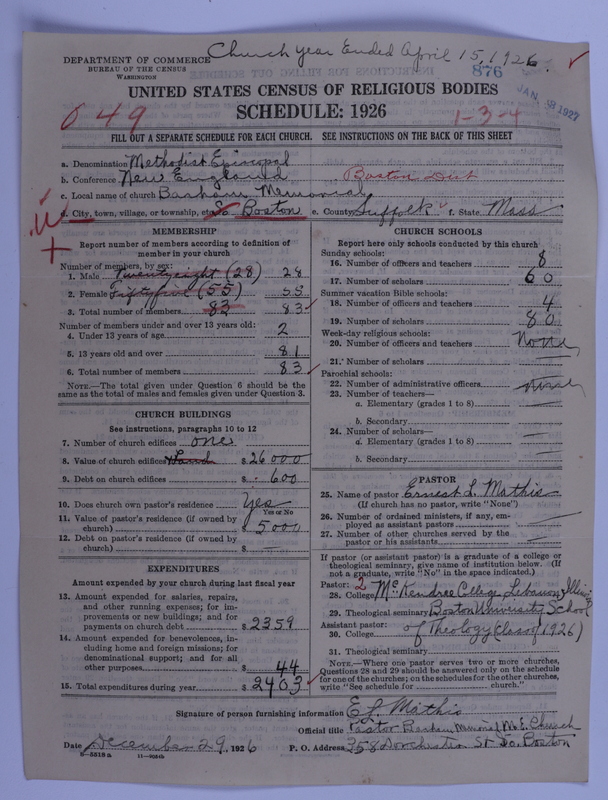 Church year Ended April 15, 1926.
DEPARTMENT OF COMMERCE
BUREAU OF THE CENSUS
WASHINGTON
876
JAN 1927
UNITED STATES CENSUS OF RELIGIOUS BODIES
SCHEDULE: 1926
049
1-3-4
FILL OUT A SEPARATE SCHEDULE FOR EACH CHURCH. SEE INSTRUCTIONS ON THE BACK OF THIS SHEET
a. Denomination Methodist Episcopal
b. Conference New England Boston Dist
c. Local name of church Barham Memorial
d. City, town, village, or township, etc. So Boston e. County Suffolk f. State Mass
MEMBERSHIP
Report number of members according to definition of
member in your church
Number of members, by sex:
1. Male Twentyeight (28) 28
2. Female Fiftyfive (55) 55
3. Total number of members 83 83
Number of members under and over 13 years old:
4. Under 13 years of age 2
5. 13 years old and over 81
6. Total number of members 83
NOTE.—The total given under Question 6 should be the
same as the total of males and females given under Question 3.
CHURCH BUILDINGS
See instructions, paragraphs 10 to 12
7. Number of church edifices one
8. Value of church edifices $ 26000
9. Debt on church edifices $ 600
10. Does church own pastor's residence Yes
Yes or No
11. Value of pastor's residence (if owned by
church) $ 5000
12. Debt on pastor's residence (if owned by
church) $ —
EXPENDITURES
Amount expended by your church during last fiscal year
13. Amount expended for salaries, repairs,
and other running expenses; for im-
provements or new buildings; and for
payments on church debt $ 2359
14. Amount expended for benevolences, in-
cluding home and foreign missions; for
denominational support; and for all
other purposes $ 44
15. Total expenditures during year $ 2403
CHURCH SCHOOLS
Report here only schools conducted by this church
Sunday schools:
16. Number of officers and teachers 8
17. Number of scholars 60
Summer vacation Bible schools:
18. Number of officers and teachers 4
19. Number of scholars 80
Week-day religious schools:
20. Number of officers and teachers None
21. Number of scholars —
Parochial schools:
22. Number of administrative officers None
23. Number of teachers—
a. Elementary (grades 1 to 8) —
b. Secondary —
24. Number of scholars—
a. Elementary (grades 1 to 8) —
b. Secondary —
PASTOR
25. Name of pastor Ernest L. Mathis
(If church has no pastor, write "None")
26. Number of ordained ministers, if any, em-
ployed as assistant pastors —
27. Number of other churches served by the
pastor or his assistants —
If pastor (or assistant pastor) is a graduate of a college or
theological seminary, give name of institution below. (If
not a graduate, write "No" in the space indicated.)
Pastor: 2
28. College McKendree College Lebanon, Illinois
29. Theological seminary Boston University School
Assistant pastor: of Theology (Class of 1926)
30. College
31. Theological seminary
NOTE.—Where one pastor serves two or more churches,
Questions 28 and 29 should be answered only on the schedule
for one of the churches; on the schedules for the other churches,
write "See schedule for church."
Signature of person furnishing information E L. Mathis
Official title Pastor Barham Memorial M. E. Church
Date December 29, 1926 P. O. Address 358 Dorchester St So. Boston
8—5518 a